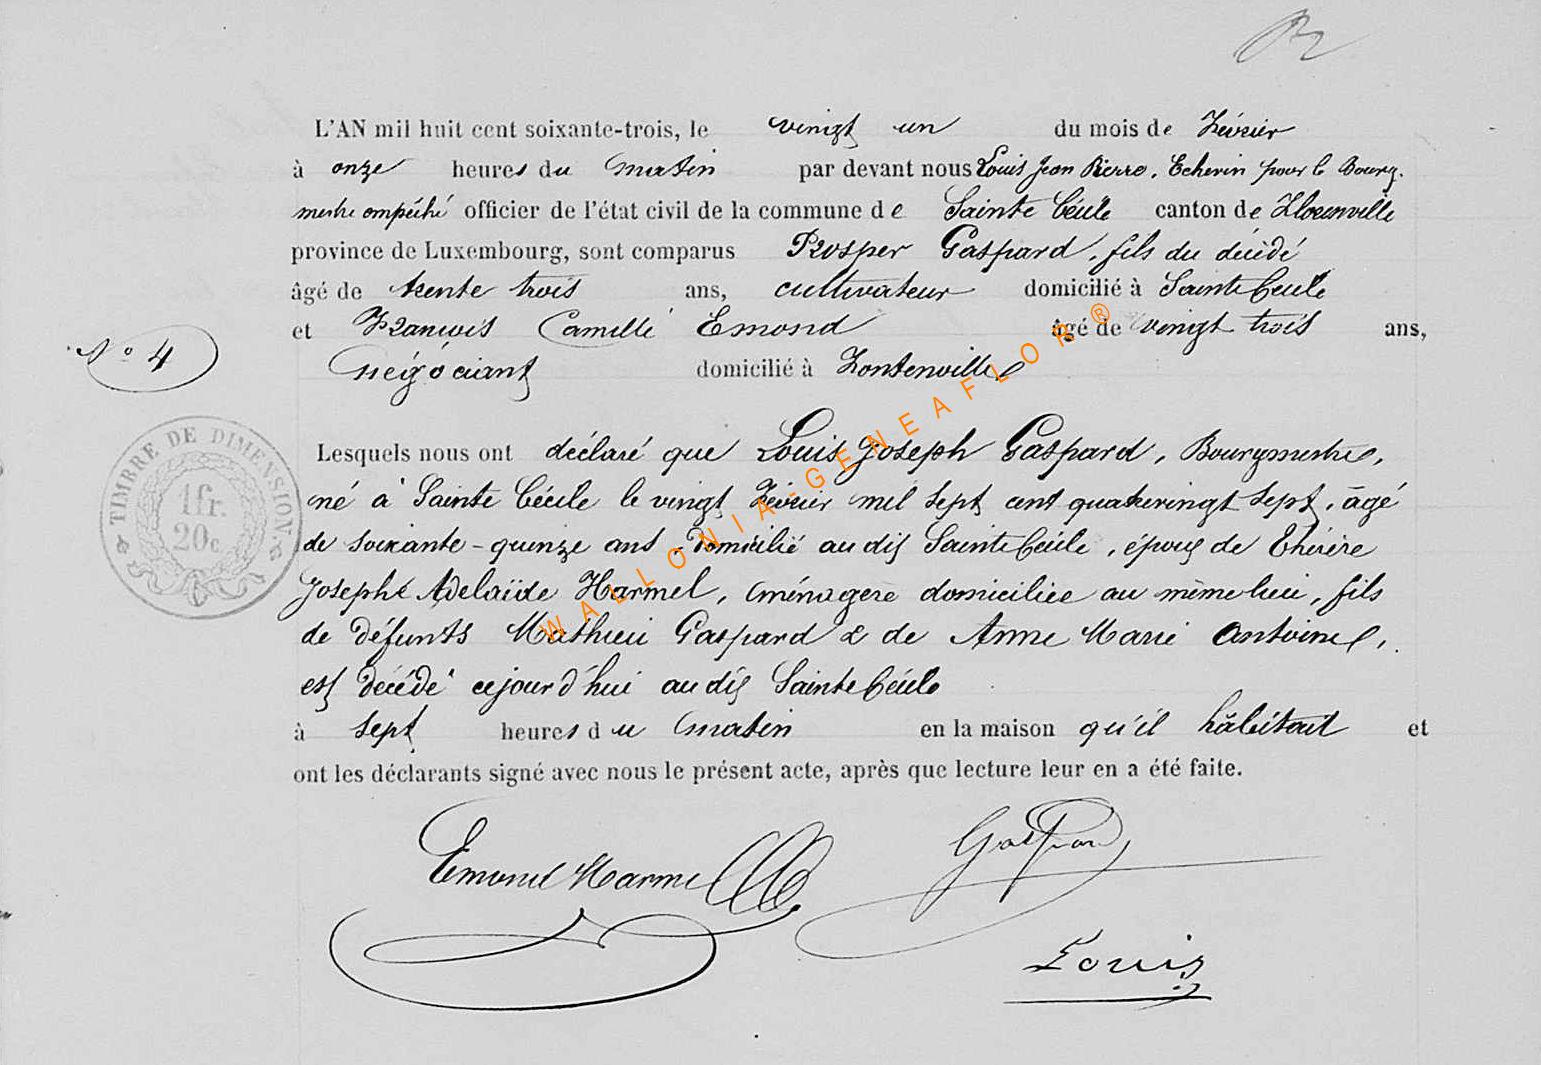 L'AN mil huit cent soixante-trois, le vingt un du mois de Février
à onze heures du matin par devant nous Louis Jean Pierre, Echevin pour le Bourg-
mestre empêché officier de l'état civil de la commune de Sainte Cécile canton de Florenville
province de Luxembourg, sont comparus Prosper Gaspard, fils du décédé
âgé de trente trois ans, cultivateur domicilié à Sainte Cécile
et François Camille Emond âgé de vingt trois ans,
Nº 4
négociant domicilié à Fontenville
Lesquels nous ont déclaré que Louis Joseph Gaspard, Bourgmestre,
né à Sainte Cécile le vingt Février mil sept cent quatrevingt sept, âgé
de soixante-quinze ans, domicilié au dit Sainte Cécile, époux de Thérèse
Josephe Adelaïde Harmel, ménagère domiciliée au même lieu, fils
de défunts Mathieu Gaspard & de Anne Marie Antoine,
est décédé cejourd'hui au dit Sainte Cécile
à sept heures du matin en la maison qu'il habitait et
ont les déclarants signé avec nous le présent acte, après que lecture leur en a été faite.
TIMBRE DE DIMENSION.
1fr.
20c
WALLONIA-GENEAFLOR®
Emond Harmel
Gaspard
Louis